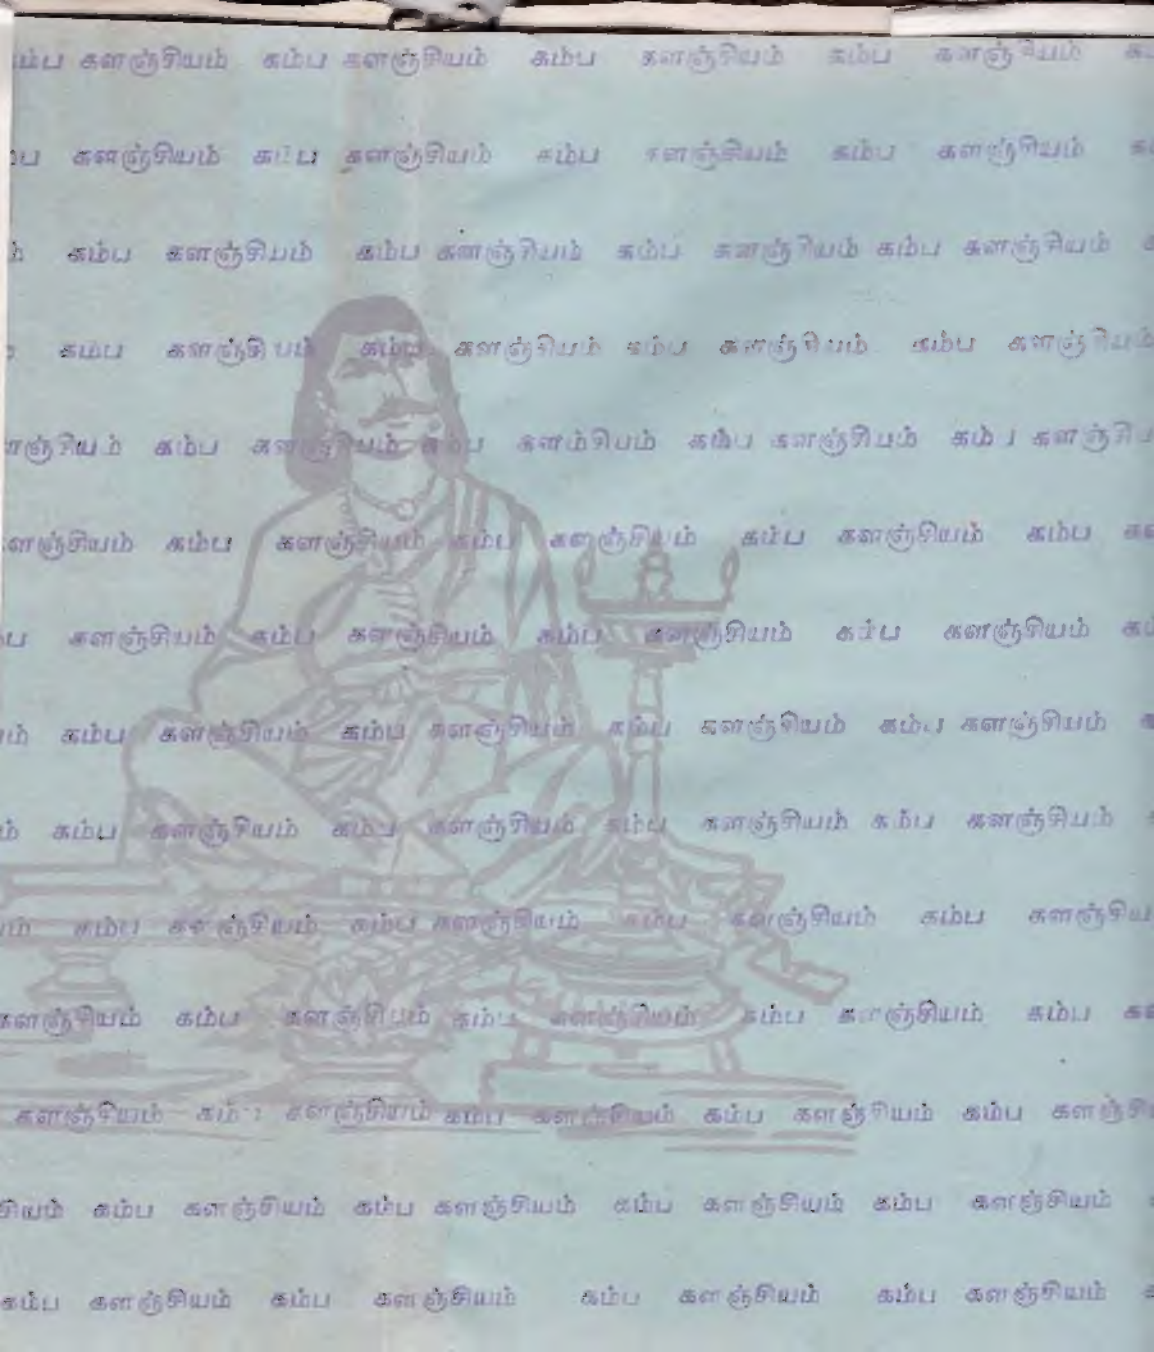 கம்ப களஞ்சியம் கம்ப களஞ்சியம் கம்ப களஞ்சியம் கம்ப களஞ்சியம்
களஞ்சியம் கம்ப களஞ்சியம் கம்ப களஞ்சியம் கம்ப களஞ்சியம்
கம்ப களஞ்சியம் கம்ப களஞ்சியம் கம்ப களஞ்சியம் கம்ப களஞ்சியம்
கம்ப களஞ்சியம் கம்ப களஞ்சியம் கம்ப களஞ்சியம் கம்ப களஞ்சியம்
களஞ்சியம் கம்ப களஞ்சியம் கம்ப களம்சியம் கம்ப களஞ்சியம் கம்ப களஞ்சிய
களஞ்சியம் கம்ப களஞ்சியம் கம்ப களஞ்சியம் கம்ப களஞ்சியம் கம்ப
களஞ்சியம் கம்ப களஞ்சியம் கம்ப களஞ்சியம் கம்ப களஞ்சியம்
கம்ப களஞ்சியம் கம்ப களஞ்சியம் கம்ப களஞ்சியம் கம்ப களஞ்சியம்
கம்ப களஞ்சியம் கம்ப களஞ்சியம் கம்ப களஞ்சியம் கம்ப களஞ்சியம்
கம்ப களஞ்சியம் கம்ப களஞ்சியம் கம்ப களஞ்சியம் கம்ப களஞ்சிய
களஞ்சியம் கம்ப களஞ்சியம் கம்ப களஞ்சியம் கம்ப களஞ்சியம் கம்ப
களஞ்சியம் கம்ப களஞ்சியம் கம்ப களஞ்சியம் கம்ப களஞ்சியம் கம்ப களஞ்சி
சியம் கம்ப களஞ்சியம் கம்ப களஞ்சியம் கம்ப களஞ்சியம் கம்ப களஞ்சியம்
கம்ப களஞ்சியம் கம்ப களஞ்சியம் கம்ப களஞ்சியம் கம்ப களஞ்சியம்